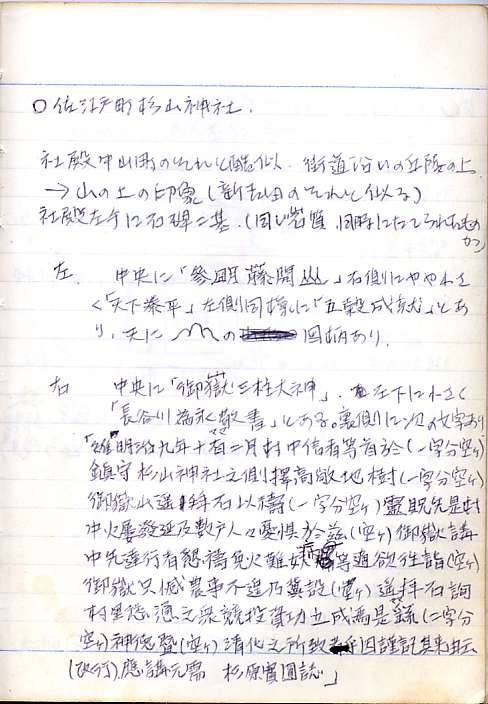 ○佐江戸町杉山神社.
社殿中山町のそれと酷似. 街道沿いの丘陵の上
→山の上の印象(新吉田のそれと似る)
社殿左手に石碑二基.(同じ岩質、同時にたてられたもの
か)
左. 中央に「 開山」右側にややわさ
く「天下泰平」左側同様に「五穀成就」とあ
り、天に の 図柄あり.
右 中央に「御嶽三柱大神」. 左下に小さく
「長谷川為永敬書」とある。裏側に次の文字あり
「維明治九年十有二月村中信者等首於(一字分空ヶ)
鎮守杉山神社之側擇高敞地樹(一字分空ヶ)
御嶽山遥拝石以祷(一字分空ヶ)靈貺先是村
中火屢發延及数戸人々憂惧於茲(空ヶ)御嶽講
中先達行者懇祷免火難 等過欲往詣(空ヶ)
御嶽只 農事不遑乃冀設(空ヶ)遥拝石詢
村里 之衆競投資功立成焉是 (二字分
空ヶ)神徳 (空ヶ)清化之所致 因謹記其来由云
(改行)應講元需 杉原實圓誌」